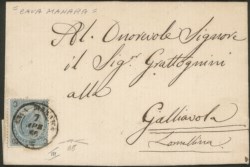 "CAVA MANARA"
Al. Onorevole Signore
il Sigr. Grattognini
alla
Galliavola
Lomellina
CAVA MANARA
7
APR